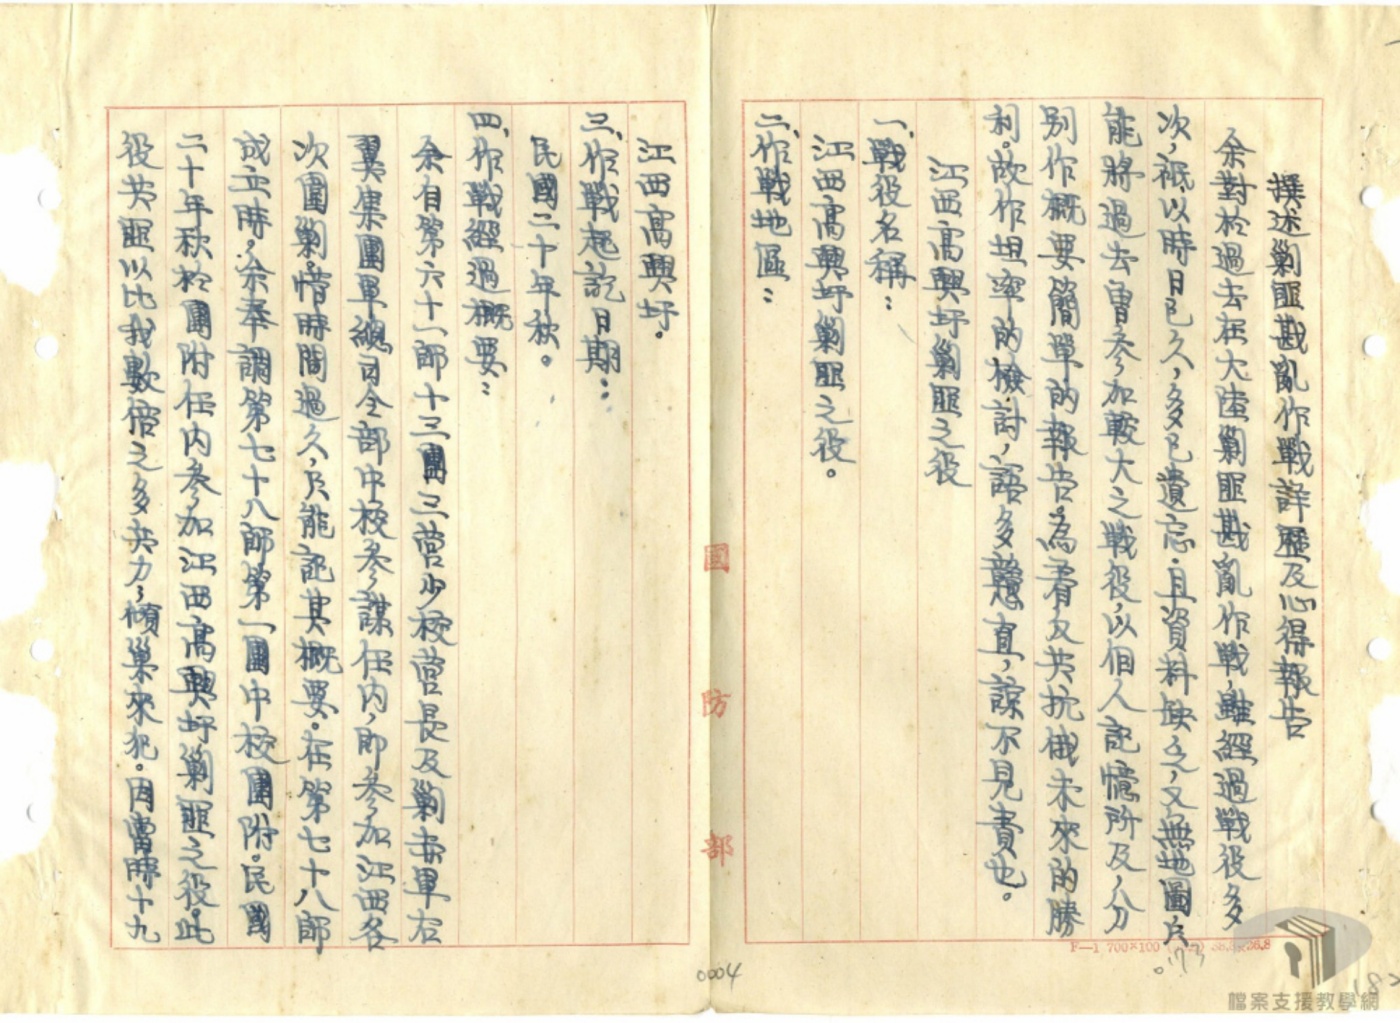 撰述剿匪戡亂作戰詳歷及心得報告
余對於過去在大陸剿匪戡亂作戰，雖經過戰役多
次，祇以時日已久，多已遺忘．且資料缺乏，又無地圖，只
能將過去曾參加較大之戰役，以個人記憶所及，分
別作概要簡單的報告。為着反共抗俄未來的勝
利。故作坦率的檢討，語多戇直，諒不見責也。
江西高興圩剿匪之役
一、戰役名稱：
江西高興圩剿匪之役。
二、作戰地區：
江西高興圩。
三、作戰起訖日期：
民國二十年秋。
四、作戰經過概要：
余自第六十一師十三團三營少校營長及剿赤軍右
翼集團軍總司令部中校參謀任內，即參加江西各
次圍剿，惟時間過久，只能記其概要。在第七十八師
成立時，余奉調第七十八師第一團中校團附。民國
二十年秋於團附任內參加江西高興圩剿匪之役。此
役共匪以比我數倍之多兵力，傾巢來犯。因當時十九
國防部
0004
F—1 700×100
檔案支援教學網